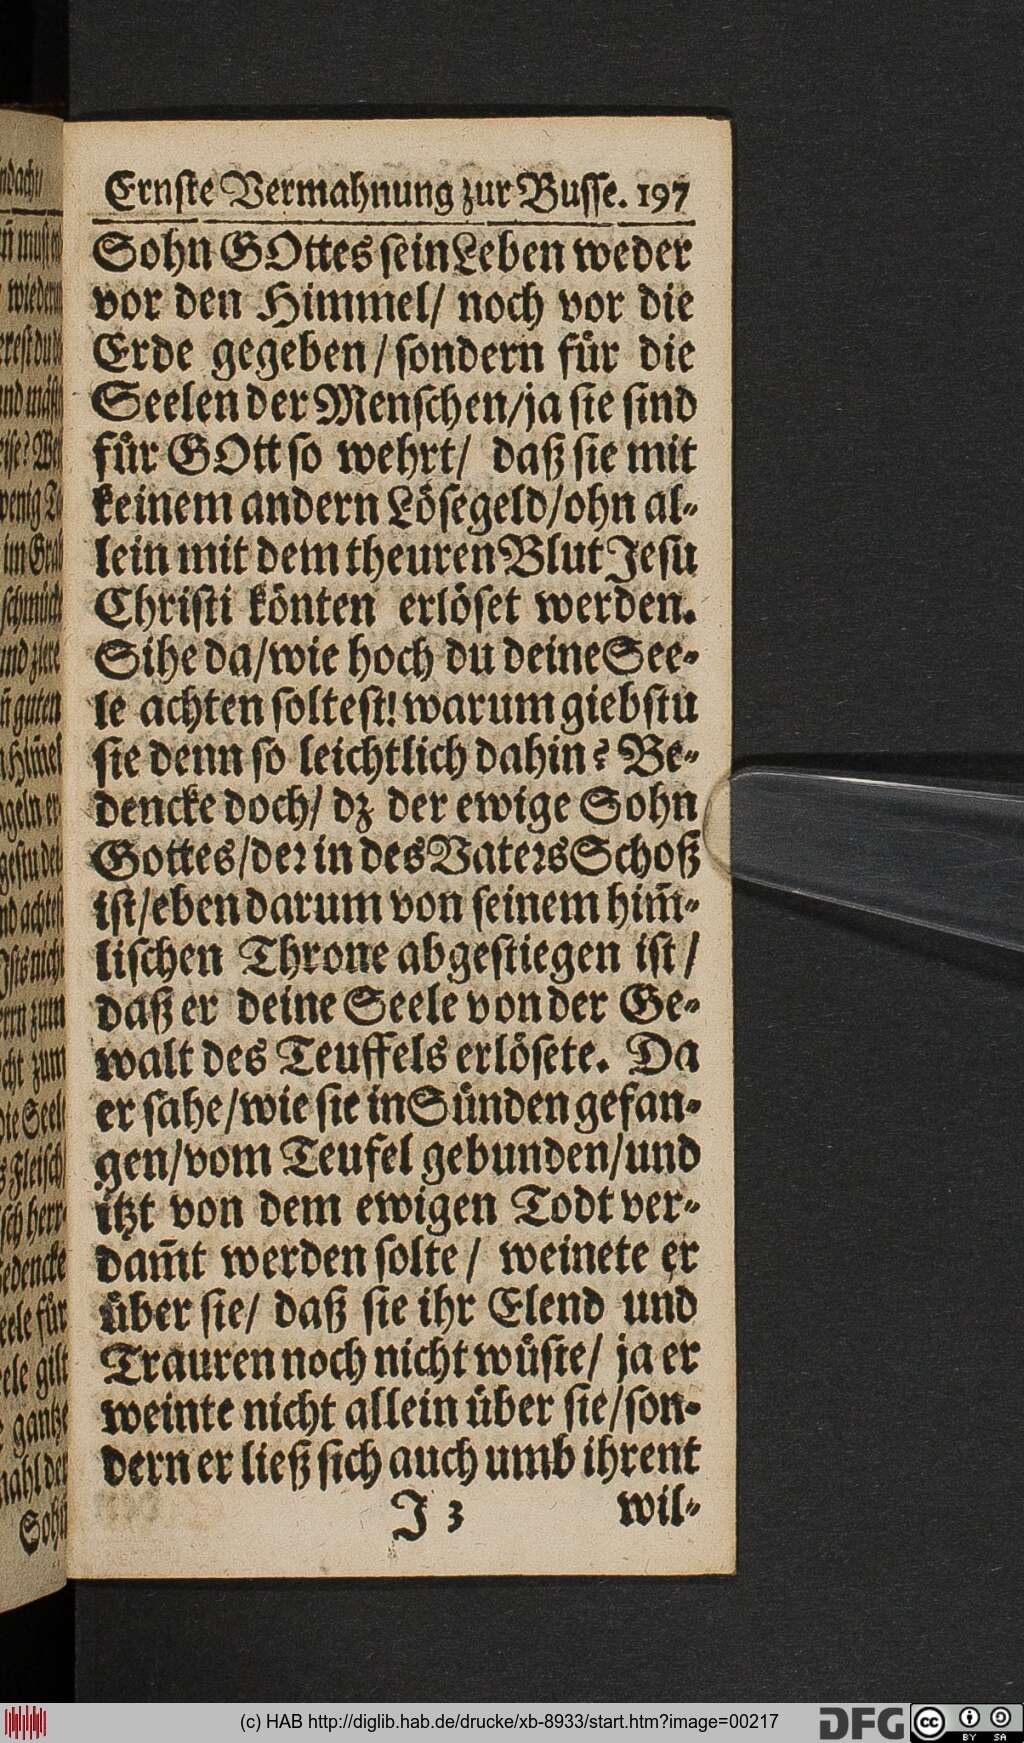 Ernste Vermahnung zur Busse. 197
Sohn GOttes sein Leben weder
vor den Himmel/ noch vor die
Erde gegeben/ sondern für die
Seelen der Menschen/ja sie sind
für GOtt so wehrt/ daß sie mit
keinem andern Lösegeld/ohn al-
lein mit dem theuren Blut Jesu
Christi könten erlöset werden.
Sihe da/wie hoch du deine See-
le achten soltest! warum giebstu
sie denn so leichtlich dahin? Be-
dencke doch/ dz der ewige Sohn
Gottes/der in des Vaters Schoß
ist/eben darum von seinem him̄-
lischen Throne abgestiegen ist/
daß er deine Seele von der Ge-
walt des Teuffels erlösete. Da
er sahe/wie sie in Sünden gefan-
gen/vom Teufel gebunden/und
itzt von dem ewigen Todt ver-
dam̄t werden solte/ weinete er
über sie/ daß sie ihr Elend und
Trauren noch nicht wüste/ ja er
weinte nicht allein über sie/son-
dern er ließ sich auch umb ihrent
J 3 wil-
(c) HAB http://diglib.hab.de/drucke/xb-8933/start.htm?image=00217
DFG cc BY SA